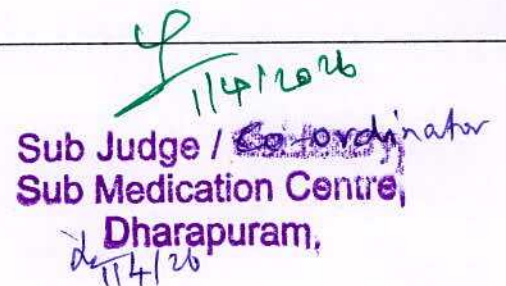 1/4/2026
Sub Judge / Co-ordinator
Sub Medication Centre,
Dharapuram,
1/4/26